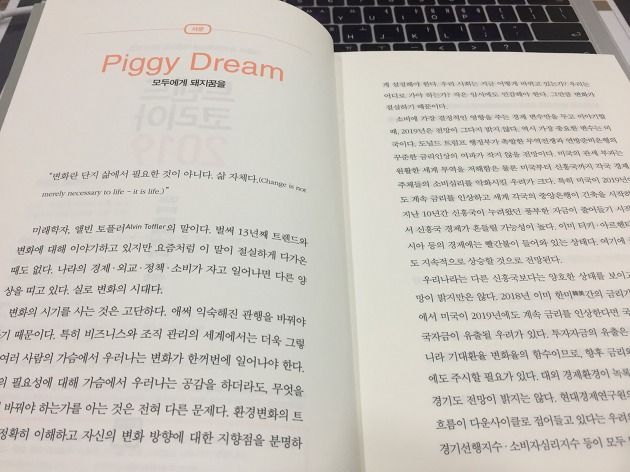 서문
Piggy Dream
모두에게 돼지꿈을
“변화란 단지 삶에서 필요한 것이 아니다. 삶 자체다.(Change is not
merely necessary to life – it is life.)”
미래학자, 앨빈 토플러Alvin Toffler의 말이다. 벌써 13년째 트렌드와
변화에 대해 이야기하고 있지만 요즘처럼 이 말이 절실하게 다가온
때도 없다. 나라의 경제·외교·정책·소비가 자고 일어나면 다른 양
상을 띠고 있다. 실로 변화의 시대다.
변화의 시기를 사는 것은 고단하다. 애써 익숙해진 관행을 바꿔야
기 때문이다. 특히 비즈니스와 조직 관리의 세계에서는 더욱 그렇
여러 사람의 가슴에서 우러나는 변화가 한꺼번에 일어나야 한다.
의 필요성에 대해 가슴에서 우러나는 공감을 하더라도, 무엇을
바꿔야 하는가를 아는 것은 전혀 다른 문제다. 환경변화의 트
정확히 이해하고 자신의 변화 방향에 대한 지향점을 분명하
게 설정해야 한다. 우리 사회는 지금 어떻게 바뀌고 있는가? 우리는
어디로 가야 하는가? 작은 암시에도 민감해야 한다. 그만큼 변화가
절실하기 때문이다.
소비에 가장 결정적인 영향을 주는 경제 변수만을 두고 이야기할
때, 2019년은 전망이 그다지 밝지 않다. 역시 가장 중요한 변수는 미
국이다. 도널드 트럼프 행정부가 촉발한 무역전쟁과 연방준비은행의
꾸준한 금리인상의 여파가 작지 않을 전망이다. 미국의 관세 부과는
원활한 세계 무역을 저해함은 물론 미국부터 신흥국까지 각국 경제
주체들의 소비심리를 악화시킬 우려가 크다. 특히 미국이 2019년에
도 계속 금리를 인상하고 세계 각국의 중앙은행이 긴축을 시작하면
지난 10년간 신흥국이 누려왔던 풍부한 자금이 줄어들기 시작
서 신흥국 경제가 흔들릴 가능성이 높다. 이미 터키·아르헨
시아 등의 경제에는 빨간불이 들어와 있는 상태다. 여기에
도 지속적으로 상승할 것으로 전망된다.
우리나라는 다른 신흥국보다는 양호한 상태를 보이고
망이 밝지만은 않다. 2018년 이미 한미韓美간의 금리가
에서 미국이 2019년에도 계속 금리를 인상한다면 국
국자금이 유출될 우려가 있다. 투자자금의 유출은
니라 기대환율 변화율의 함수이므로, 향후 금리와
에도 주시할 필요가 있다. 대외 경제환경이 녹록
경기도 전망이 밝지는 않다. 현대경제연구원의
흐름이 다운사이클로 접어들고 있다는 우려
경기선행지수·소비자심리지수 등이 모두